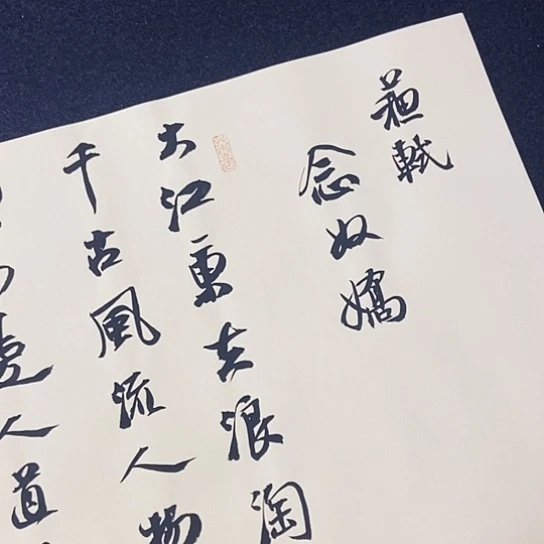 蘇軾
念奴嬌
大江東去浪淘
千古風流人物
邊人道